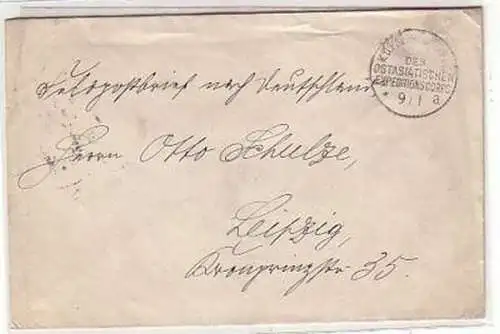 DES
OSTASIATISCHEN
EXPEDITIONSCORPS
* 9/1 a
Feldpostbrief nach Deutschland
Herrn Otto Schulze,
Leipzig,
Kronprinzstr 35.